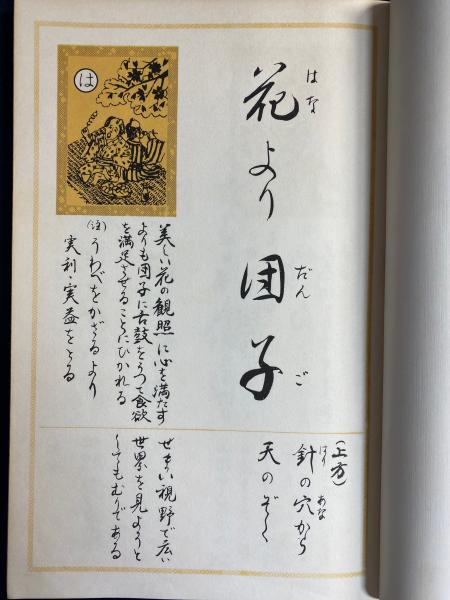 は
花より団子
はな
だんご
美しい花の観照に心を満たす
よりも団子に舌鼓をうって食欲
を満足させることにひかれる
(注)うわべをかざるより
実利・実益をとる
(上方)
針の穴から
はり
あな
天のぞく
せまい視野で広い
世界を見ようと
してもむりである